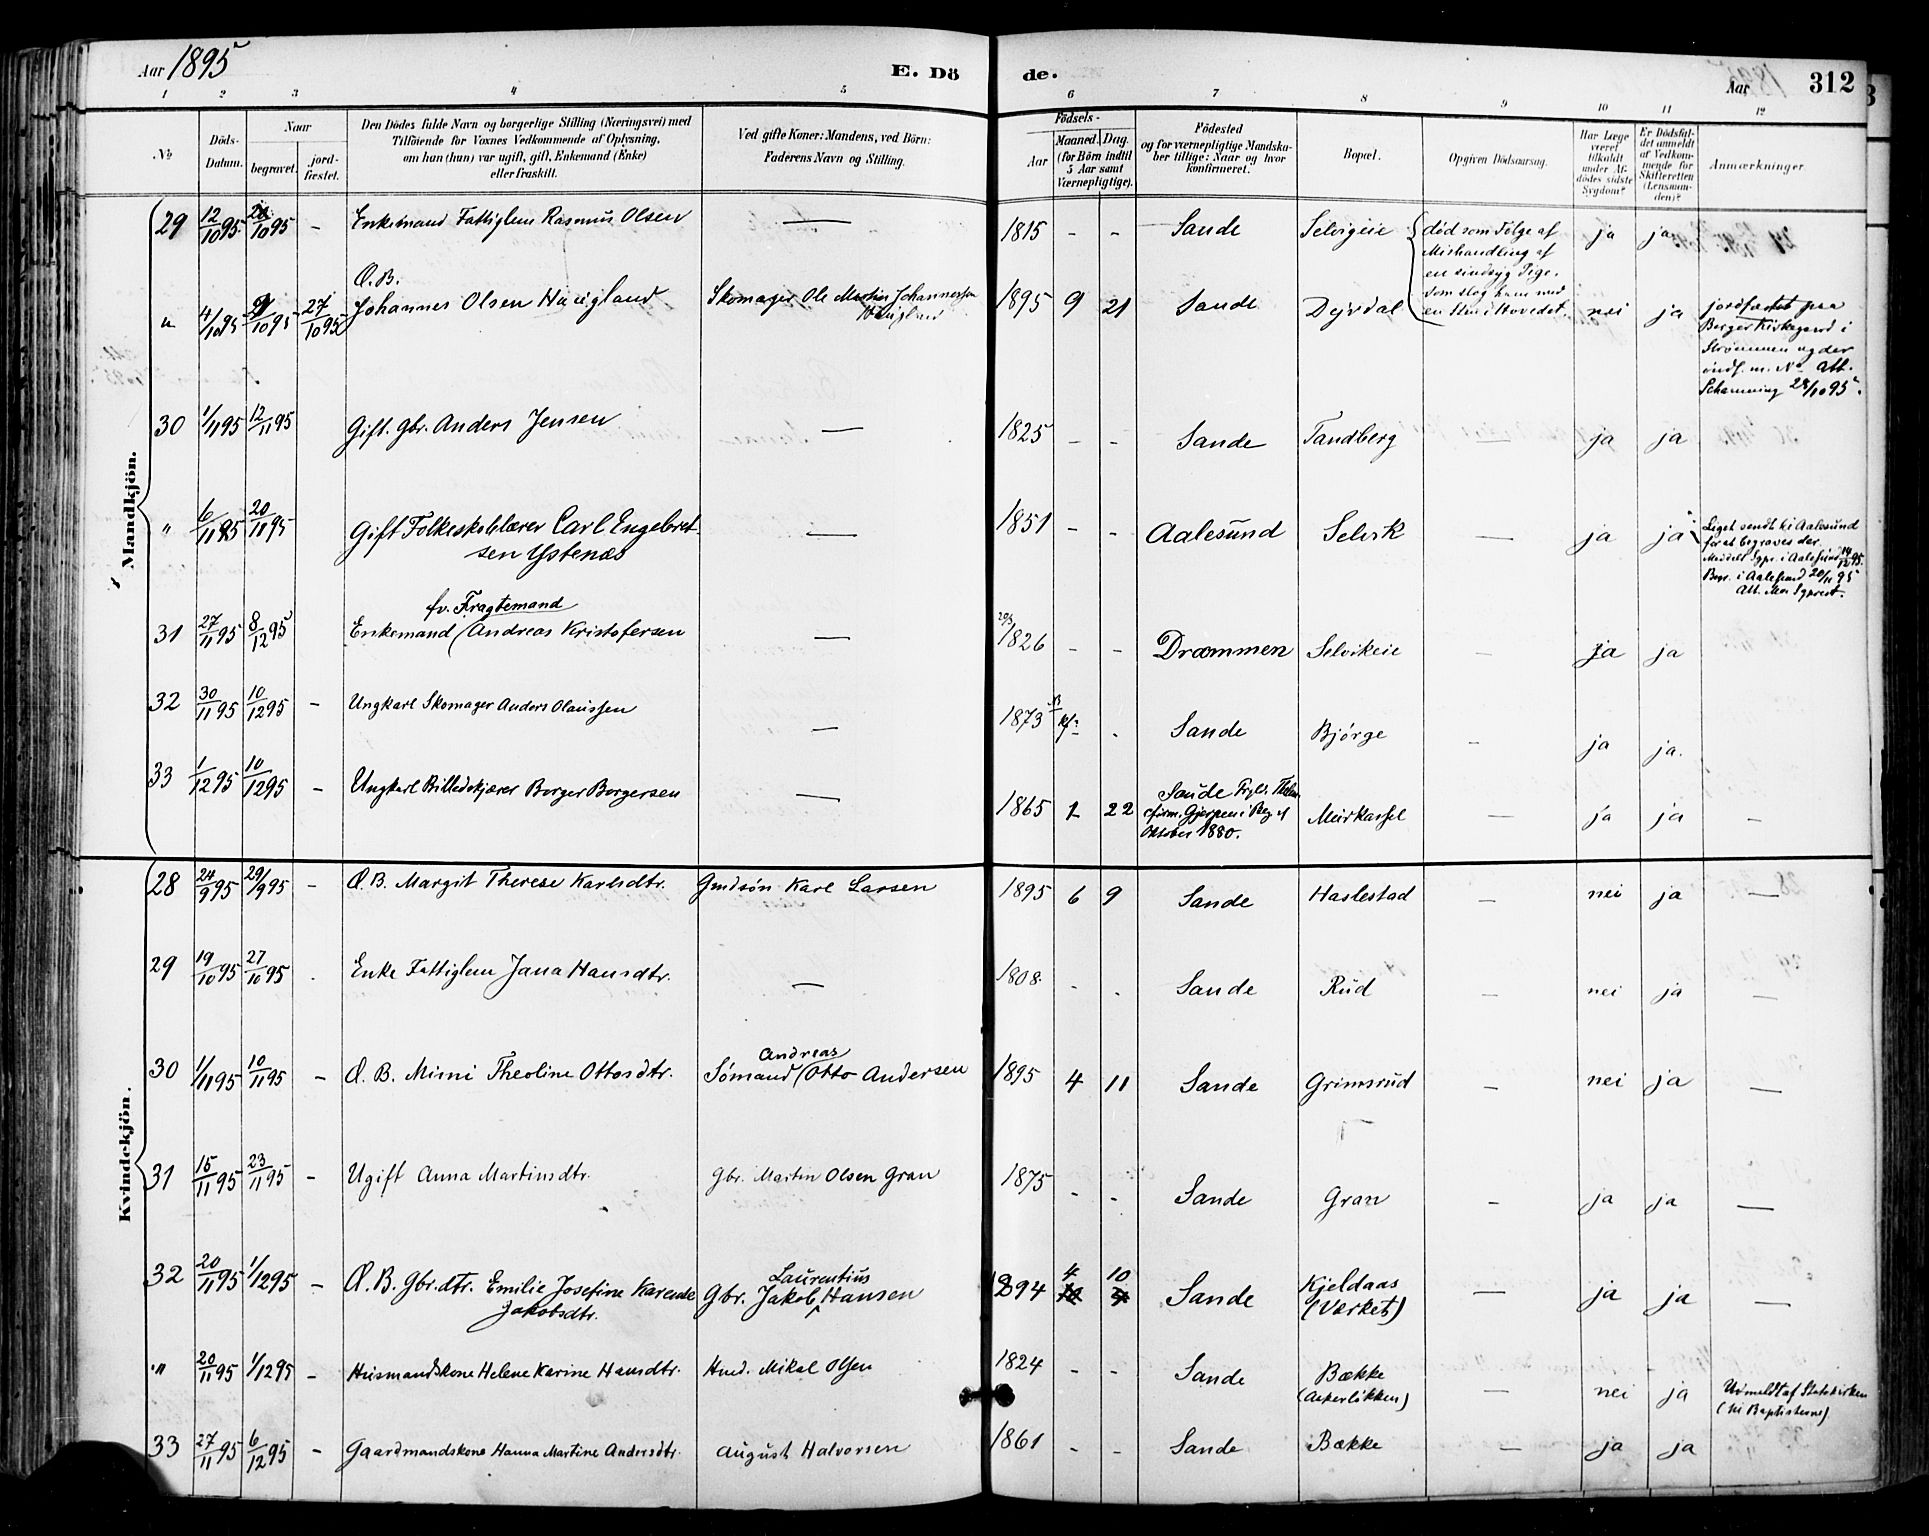 Aar 1895 E. Dö de. Aar 312
1 2 3 4 5 6 7 8 9 10 11 12
No
Döds-
Datum.
Naar
begravet.
jord-
fæstet.
Den Dödes fulde Navn og borgerlige Stilling (Næringsvei) med
Tilföiende for Voxnes Vedkommende af Oplysning,
om han (hun) var ugift, gift, Enkemand (Enke)
eller fraskilt.
Ved gifte Koner: Mandens, ved Börn:
Faderens Navn og Stilling.
Födsels-
Aar
Maaned. Dag.
(for Börn indtil
5 Aar samt
Værnepligtige).
Födested
og for værnepligtige Mandska-
ber tillige: Naar og hvor
konfirmeret.
Bopæl.
Opgiven Dödsaarsag.
Har Læge
været
tilkaldt
under Af-
dödes sidste
Sygdom?
Er Dödsfal-
det anmeldt
af Vedkom-
mende for
Skifteretten
(Lensman-
den)?
Anmærkninger.
Mandkjön.
29 12/10 95 /10 95 - Enkemand Fattiglem Rasmus Olsen — 1815 - - Sande Selvigeie død som Følge af
Mishandling af
en sindsyg Pige.
som slog ham med
en Sten i Hovedet. ja ja
" 4/10 95 9/10 95 27/10 95 Æ.B.
Johannes Olsen Haugland Skomager Ole Martin Johannessen
Haugland 1895 9 21 Sande Dejvdal nei ja jordfæstet paa
Berger Kirkegaard i
Strømmen og der
indf. m. No Att.
28/10 95.
30 1/11 95 12/11 95 Gift. Gbr. Anders Jensen — 1825 - - Sande Tandberg — ja ja
" 6/11 95 20/11 95 Gift Folkeskolelærer Carl Engebret-
sen Ystenæs — 1851 - - Aalesund Selvik — ja ja Liget sendt til Aalesund
for at begraves der.
Begr. i Aalesund 20/11 95
31 27/11 95 8/12 95 fv. Fragtemand
Enkemand (Andreas Kristofersen — 1826 - - Drammen Selvikeie - ja ja
32 30/11 95 10/12 95 - Ungkarl Skomager Anders Olaussen — 1873 - Sande Bjørge - ja ja.
33 1/12 95 10/12 95 - Ungkarl Billedskjærer Borger Borgersen — 1865 1 22 Sande
Gjerpen i
Oktober 1880. Meirkassel — ja ja -
Kvindekjön.
28 24/9 95 29/9 95 - Æ.B. Margit Therese Karlsdtr. Gmdsøn Karl Larsen 1895 6 9 Sande Haslestad - nei ja —
29 19/10 95 27/10 95 . Enke Fattiglem Jana Hansdtr. — 1808. - . Sande Rud - nei ja -
30 1/11 95 10/11 95 - Æ.B. Mimi Theoline Ottosdtr. Andreas
Sømand (Otto Andersen 1895 4 11 Sande Grimsrud - nei ja —
31 15/11 95 23/11 95 - Ugift Anna Martinsdtr. Gbr. Martin Olsen Gran 1875 - - Sande Gran - ja ja —
32 20/11 95 1/12 95 - Æ.B. Gbr.dtr. Emilie Josefine Karense
Jakobsdtr. Laurentius
Gbr. Jakob Hansen 1894 4 10 Sande Kjeldaas
(Værket) — ja ja —
" 20/11 95 1/12 95 - Husmandskone Helene Karine Hansdtr. Husd. Mikal Olsen 1824 - - Sande Bække
(Aakerløkken) — nei ja Udmeldt af Statskirken
(til Baptisterne)
33 27/11 95 6/12 95 - Gaardmandskone Hanna Martine Andersdtr. August Halvorsen 1861 - - Sande Bække — ja ja